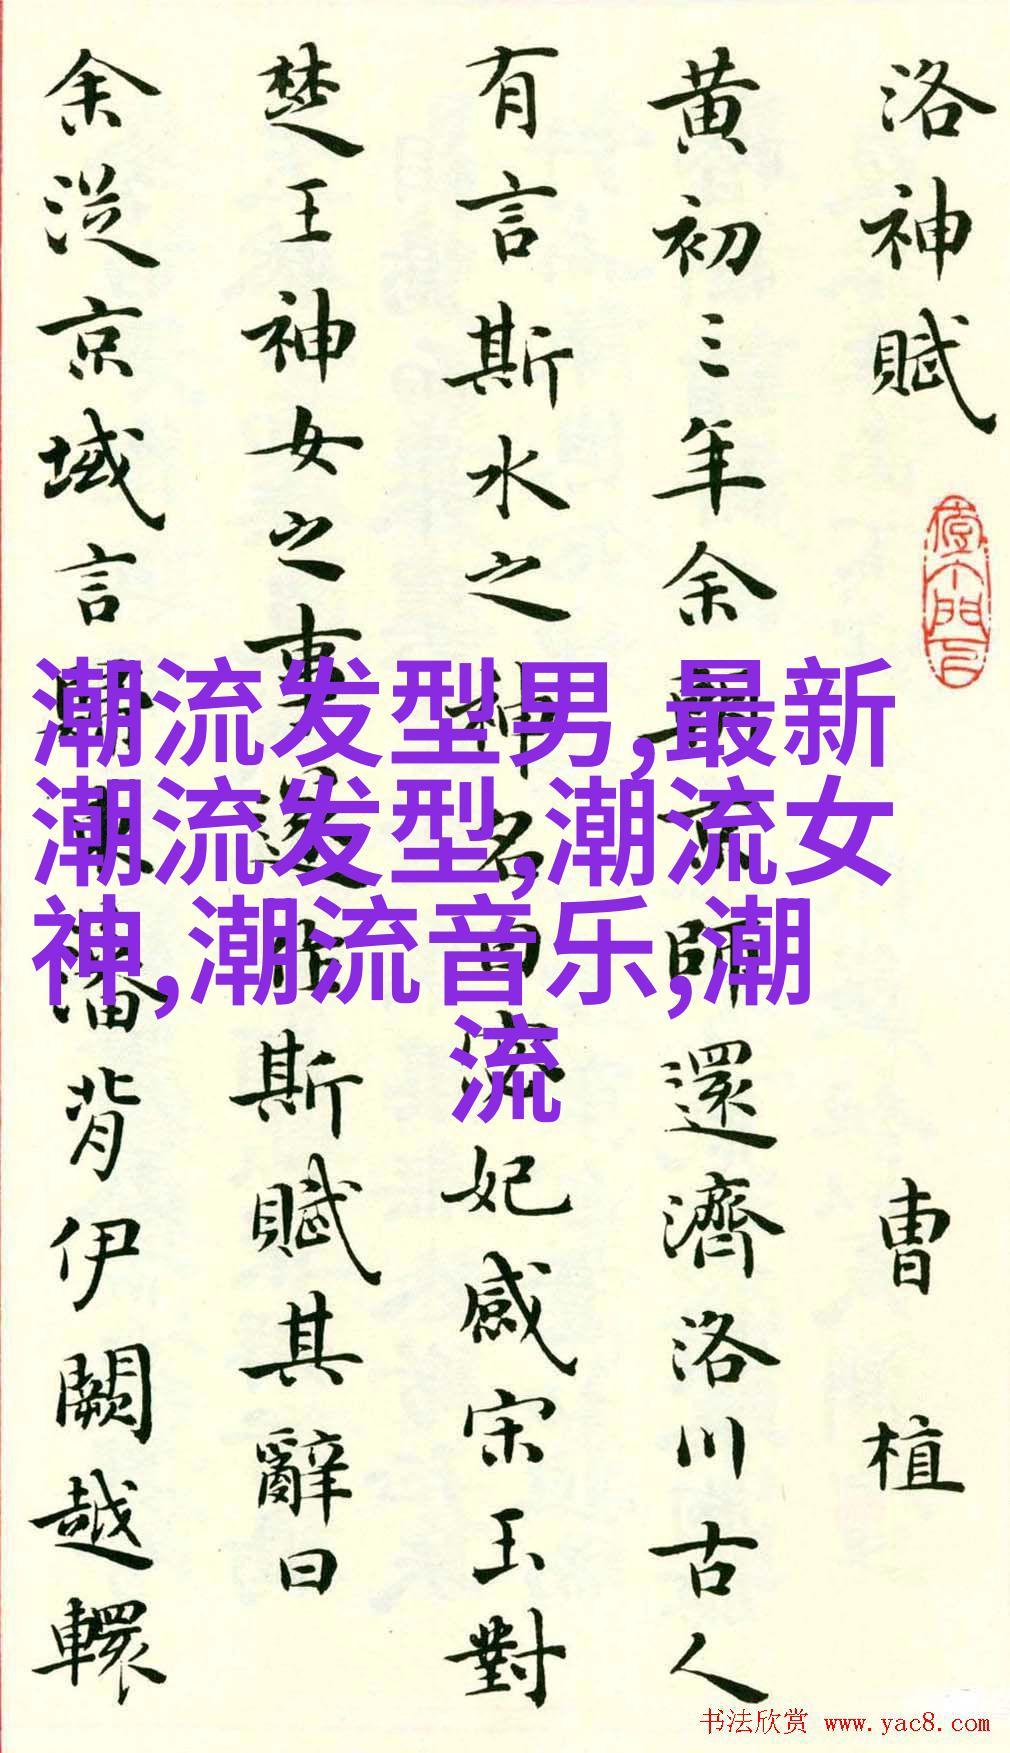 洛神賦 曹植
黄初三年余朝京師還濟洛川古人
有言斯水之神名曰宓妃感宋玉對
楚王神女之事遂作斯賦其辭曰
余從京域言歸東藩背伊闕越轘
潮流发型男,最新
潮流发型,潮流女
神,潮流音乐,潮
流
书法欣赏 www.yac8.com